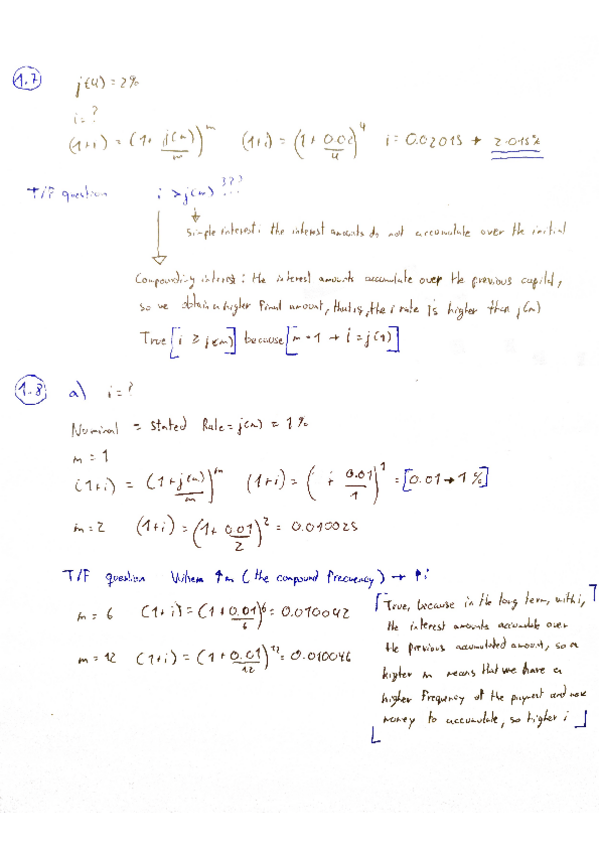 1.7 j(4) = 2%
i = ?
(1+i) = (1 + j(m)/m)^m (1+i) = (1 + 0.02/4)^4 i = 0.02015 → 2.015%
T/F question i ≥ j(m) ???
Simple interest: the interest amounts do not accumulate over the initial
Compounding interest: the interest amounts accumulate over the previous capital,
so we obtain a higher final amount, that is, the i rate is higher than j(m)
True [i ≥ j(m)] because [m = 1 → i = j(1)]
1.8 a) i = ?
Nominal = Stated Rate = j(m) = 1%
m = 1
(1+i) = (1 + j(m)/m)^m (1+i) = (1 + 0.01/1)^1 = [0.01 → 1%]
m = 2 (1+i) = (1 + 0.01/2)^2 = 0.010025
T/F question When ↑m (the compound frecuency) → ↑i
m = 6 (1+i) = (1 + 0.01/6)^6 = 0.010042
m = 12 (1+i) = (1 + 0.01/12)^12 = 0.010046
[True, because in the long term, with i,
the interest amounts accumulate over
the previous accumulated amount, so a
higher m means that we have a
higher frequency of the payment and more
money to accumulate, so higher i]